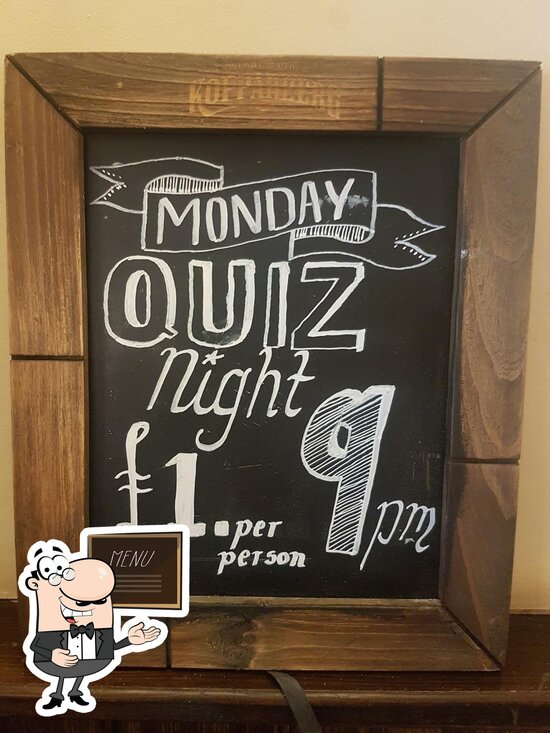 KOPPARBERG
MONDAY
QUIZ
Night
£1. per
person
9pm
MENU